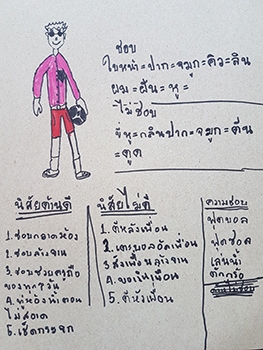 ชอบ
ใบหน้า=ปาก=จมูก=คิว=ลิน
ผม=ฝัน=หู=
ไม่ชอบ
ขี้หู=กลินปาก=จมูก=ตีน
=ตูด
นิสัยด้านดี
1.ชอบกวาดห้อง
2.ชอบล้างจาน
3.ชอบช่วยครูถือ
ของทุก7วัน
4.ปูห้องน้ำตอน
ไม่สอาด
5.เช็ดกระจก
นิสัยไม่ดี
1.ตีหลังเพื่อน
2.เตะบอลอัดเพื่อน
3.สั่งเพื่อนล้างจาน
4.ขอเงินเพื่อน
5.ตีหัวเพื่อน
ความชอบ
ฟุตบอล
ฟุตซอล
เล่นน้ำ
ตักกร้อ